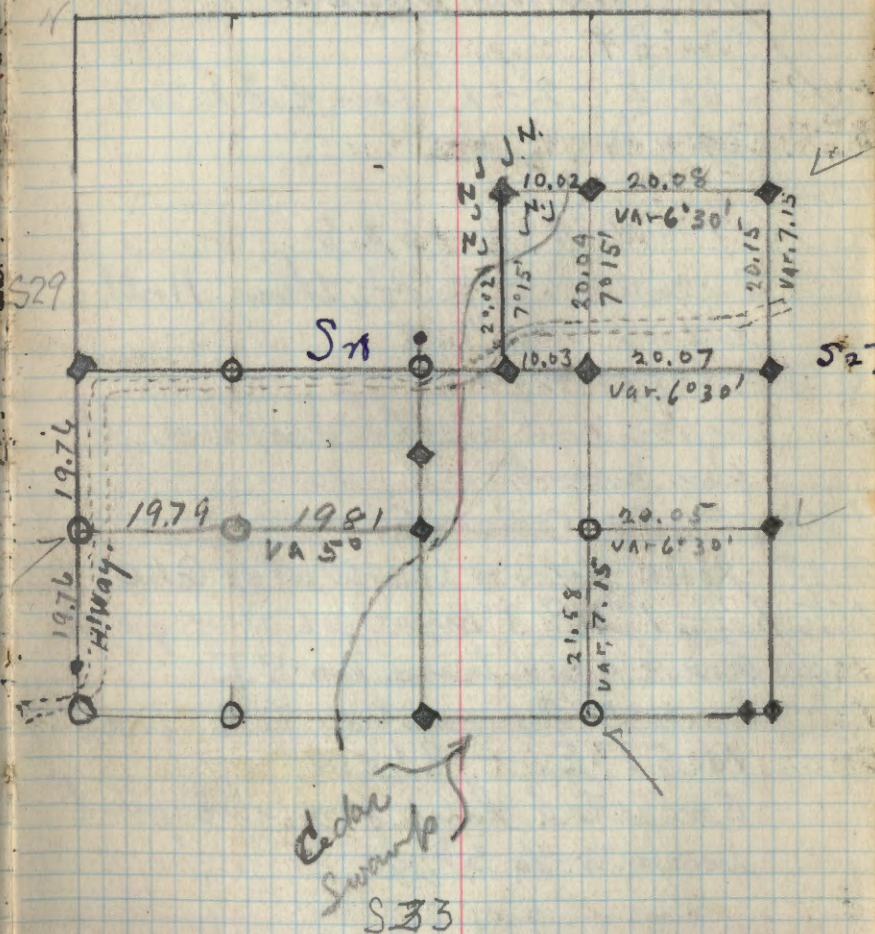 10.02 20.08
Var 6°30'
20.02
7°15'
20.04
7°15'
20.15
Var. 7.15
S29
S28
10.03 20.07
Var. 6°30'
S27
19.76
19.79 1981
VA 5°
20.05
VAr 6°30'
19.76
H!Way.
21.58
VAR. 7.15
Cedar
Swamp
S33